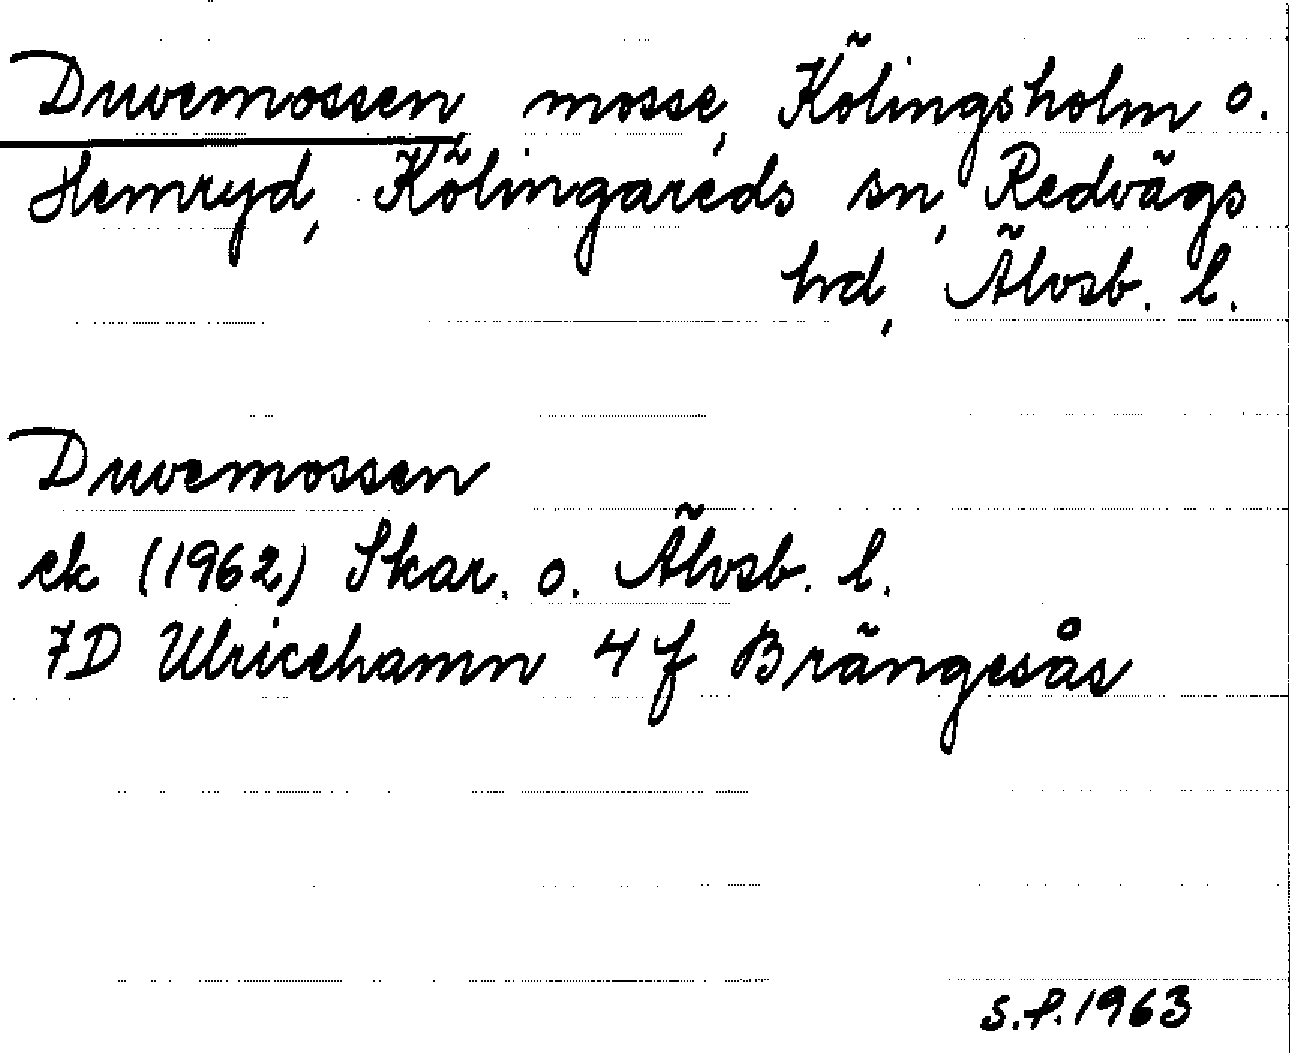 Duvemossen, mosse, Kölingsholm o.
Hemryd, Kölingareds sn, Redvägs
hrd, Älvsb. l.
Duvemossen
ek (1962) Skar. o. Älvsb. l.
7D Ulricehamn 4 f Brängesås
S.P. 1963